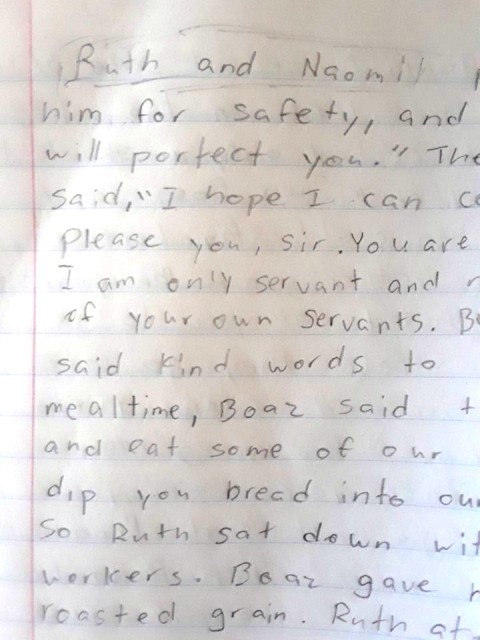 Ruth and Naomi
him for safety, and
will portect you." The
said, "I hope I can
Please you, sir. You are
I am only servant and
of your own servants.
said kind words to
mealtime, Boaz said
and eat some of our
dip you bread into
So Ruth sat down
workers. Boaz gave
roasted grain. Ruth at